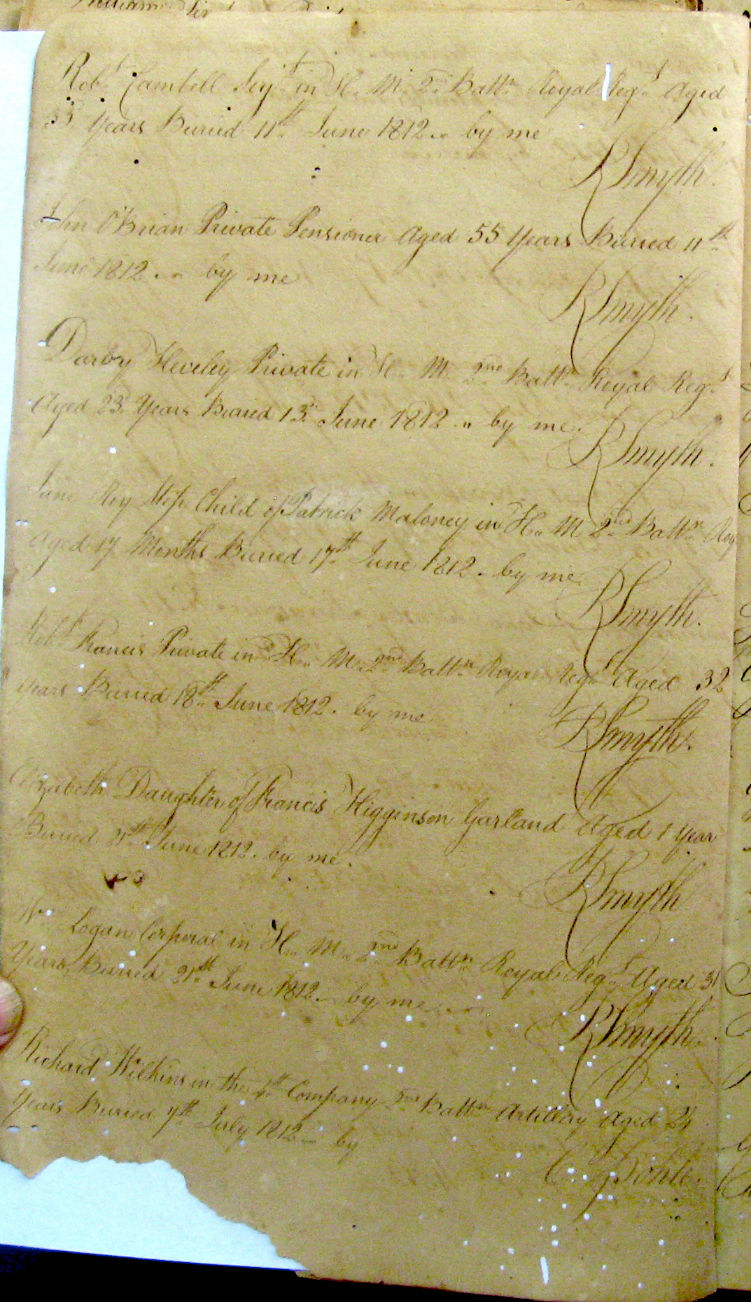 Robt Cambell Serjt in H. M. 2nd Battn Royal Regt Aged
35 Years Buried 11th June 1812 .. by me
R Smyth.
John O'Brian Private Pensioner Aged 55 Years Buried 11th
June 1812 .. by me
R Smyth.
Darby Heveley Private in H. M. 2nd Battn Royal Regt
Aged 23 Years Buried 13th June 1812 .. by me.
R Smyth.
Child of Patrick Maloney in H.. M 2nd Battn Roy
Aged 17 Months Buried 17th June 1812 . by me
R Smyth.
Robt Francis Private in H.. M. 2nd Battn Royal Regt Aged 32
Years Buried 18th June 1812 . by me
R Smyth.
Elizabeth Daughter of Francis Higginson Garland Aged 1 Year
Buried 21st June 1812 . by me .
R Smyth
Wm Logan Corporal in H.. M.. 2nd Battn Royal Regt Aged 31
Years, Buried 21st June 1812 .. by me
R Smyth.
Richard Wilkins in the Company 2nd Battn Artillery Aged 24
Years Buried 7th July 1812 .. by